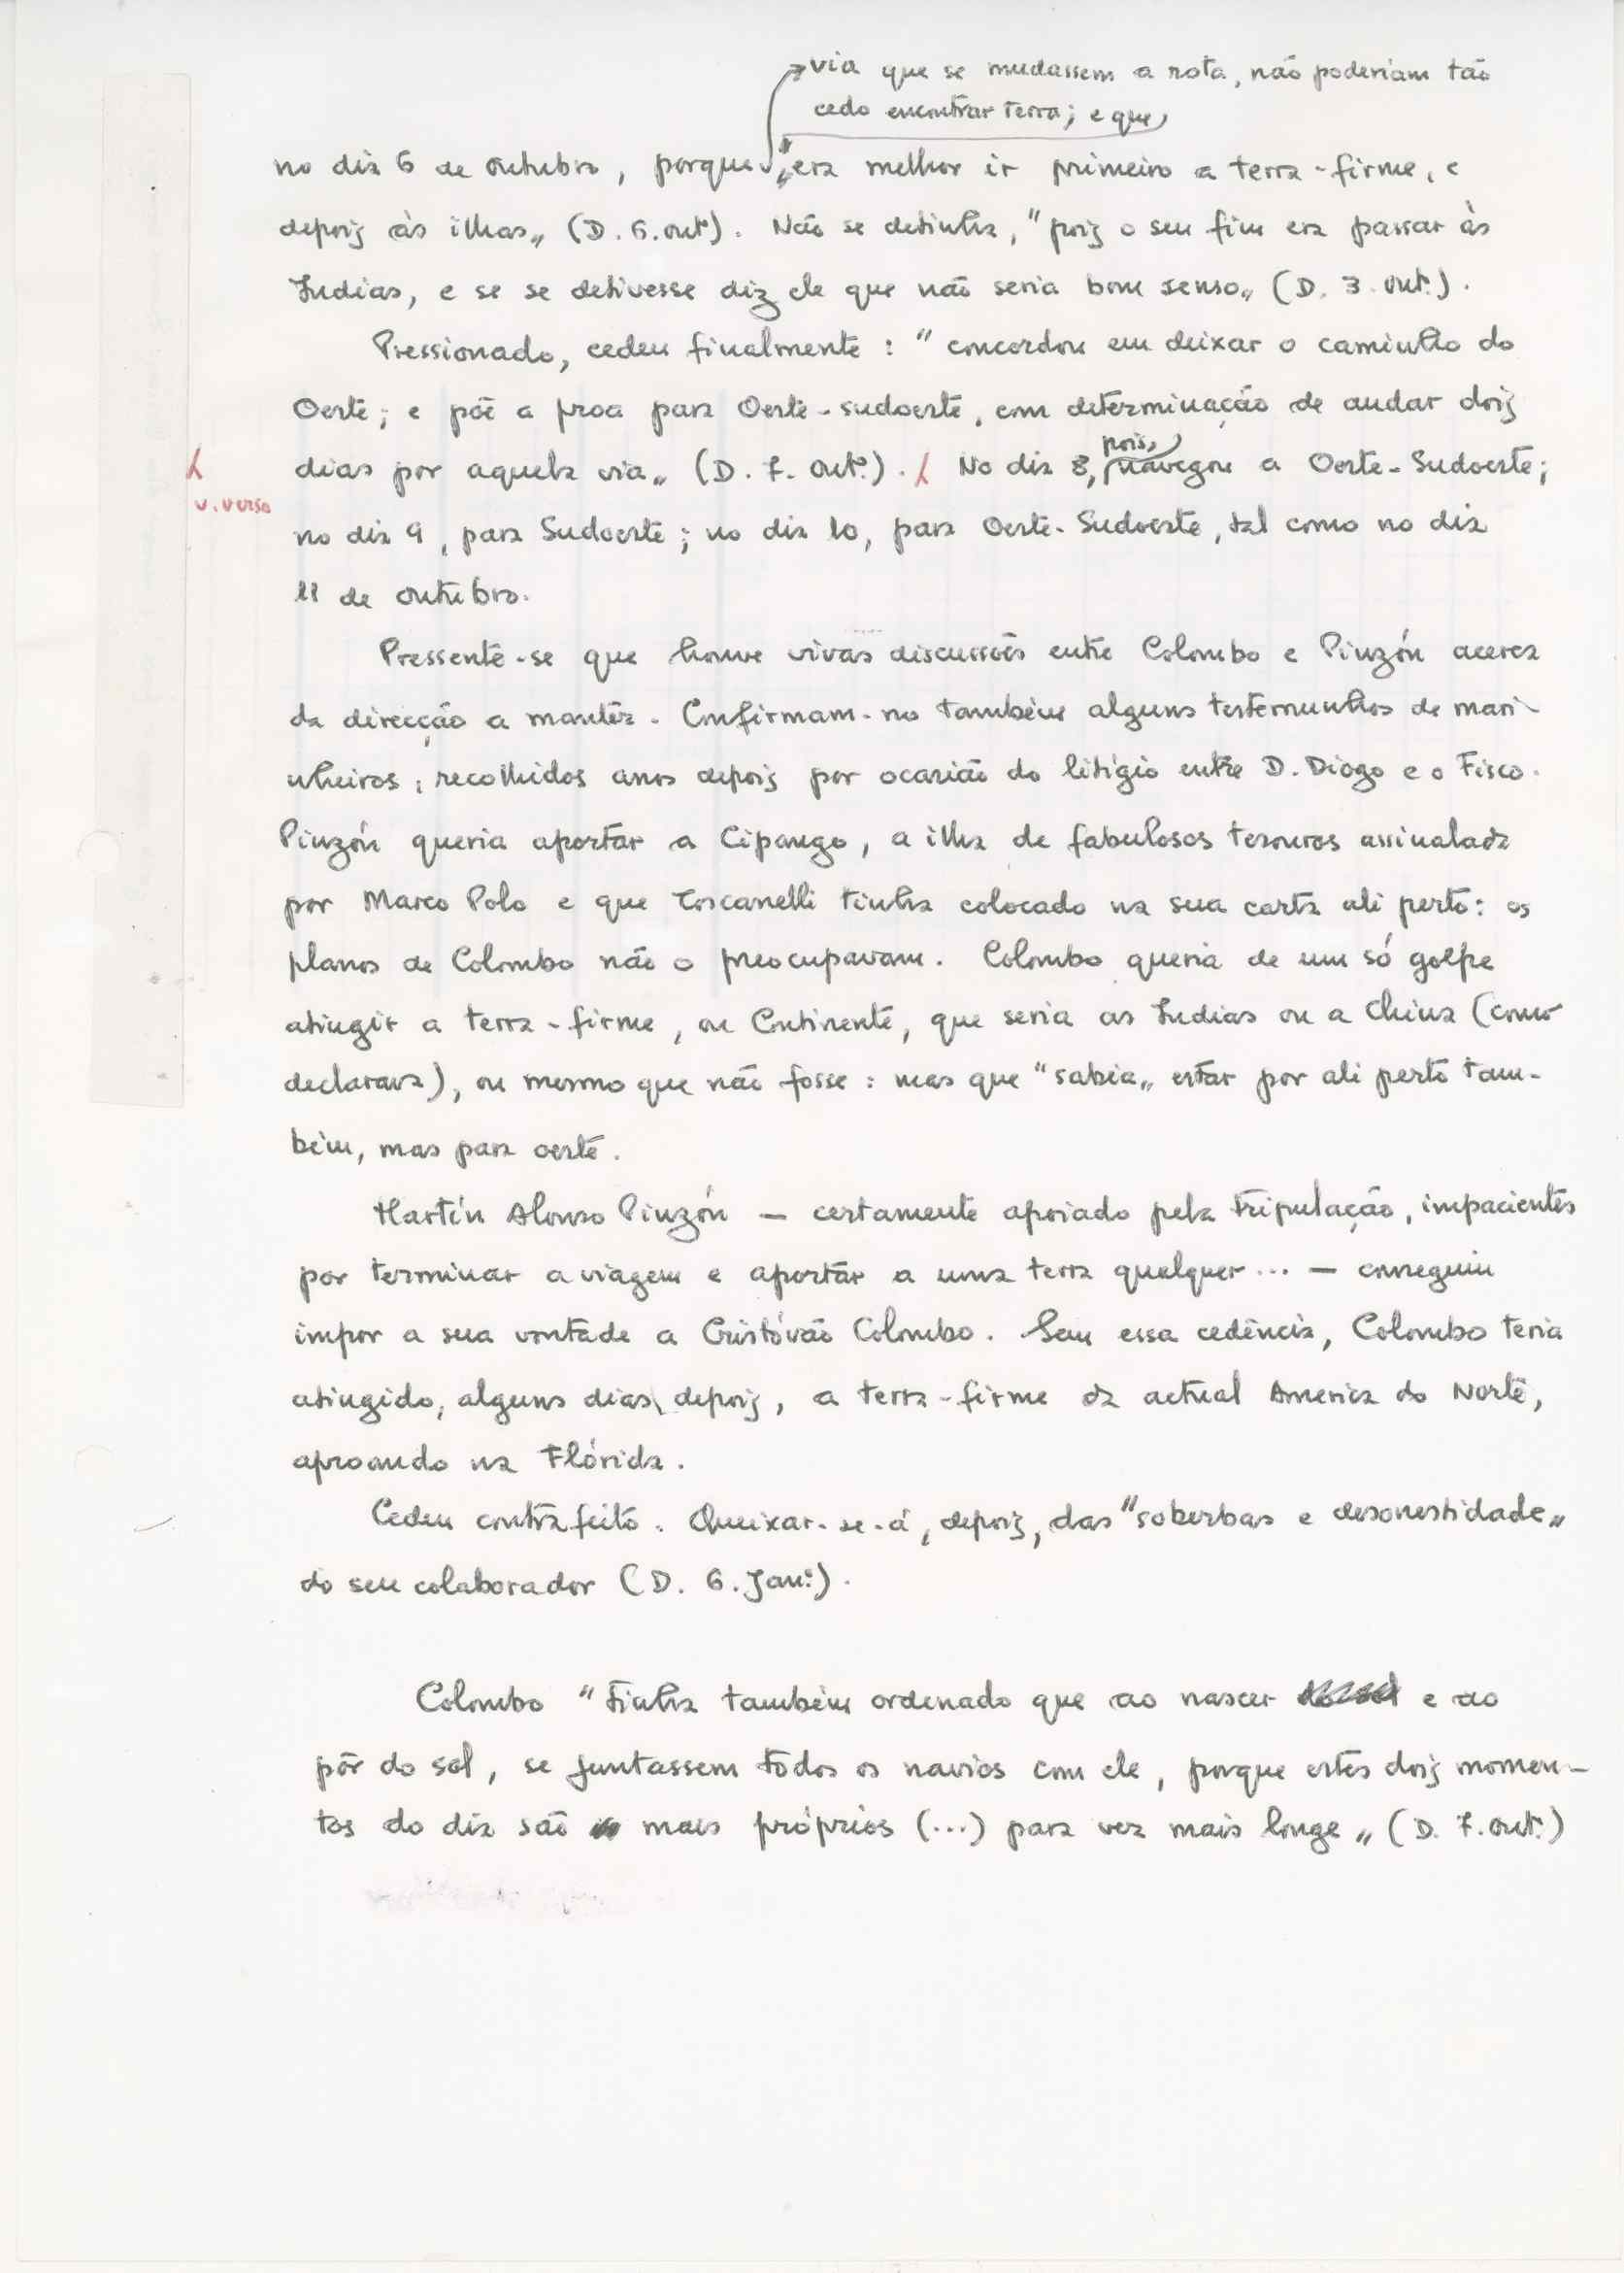 via que se mudassem a rota, não poderiam tão
cedo encontrar terra; e que
no dia 6 de outubro, porque "era melhor ir primeiro a terra-firme, e
depois às ilhas„ (D. 6. outº). Não se detinha, "pois o seu fim era passar às
Indias, e se se detivesse diz ele que não seria bom senso„ (D. 3. outº.).
Pressionado, cedeu finalmente: "concordou em deixar o caminho do
Oeste; e põe a proa para Oeste-sudoeste, com determinação de andar dois
pois,
dias por aquela via„ (D. 7. outº.). No dia 8, navegou a Oeste-Sudoeste;
v. verso
no dia 9, para Sudoeste; no dia 10, para Oeste-Sudoeste, tal como no dia
11 de outubro.
Pressente-se que houve vivas discussões entre Colombo e Pinzón acerca
da direcção a manter. Confirmam-no também alguns testemunhos de mari-
nheiros, recolhidos anos depois por ocasião do litígio entre D. Diogo e o Fisco.
Pinzón queria aportar a Cipango, a ilha de fabulosos tesouros assinalada
por Marco Polo e que Toscanelli tinha colocado na sua carta ali perto: os
planos de Colombo não o preocupavam. Colombo queria de um só golpe
atingir a terra-firme, ou Continente, que seria as Indias ou a China (como
declarava), ou mesmo que não fosse: mas que "sabia„ estar por ali perto tam-
bém, mas para oeste.
Martín Alonso Pinzón — certamente apoiado pela tripulação, impacientes
por terminar a viagem e aportar a uma terra qualquer... — conseguiu
impor a sua vontade a Cristóvão Colombo. Sem essa cedência, Colombo teria
atingido, alguns dias depois, a terra-firme da actual America do Norte,
aproando na Flórida.
Cedeu contrafeito. Queixar-se-á, depois, das "soberbas e desonestidade„
do seu colaborador (D. 6. Janº.).
Colombo "tinha também ordenado que ao nascer e ao
pôr do sol, se juntassem todos os navios com ele, porque estes dois momen-
tos do dia são mais próprios (...) para ver mais longe„ (D. 7. outº.)